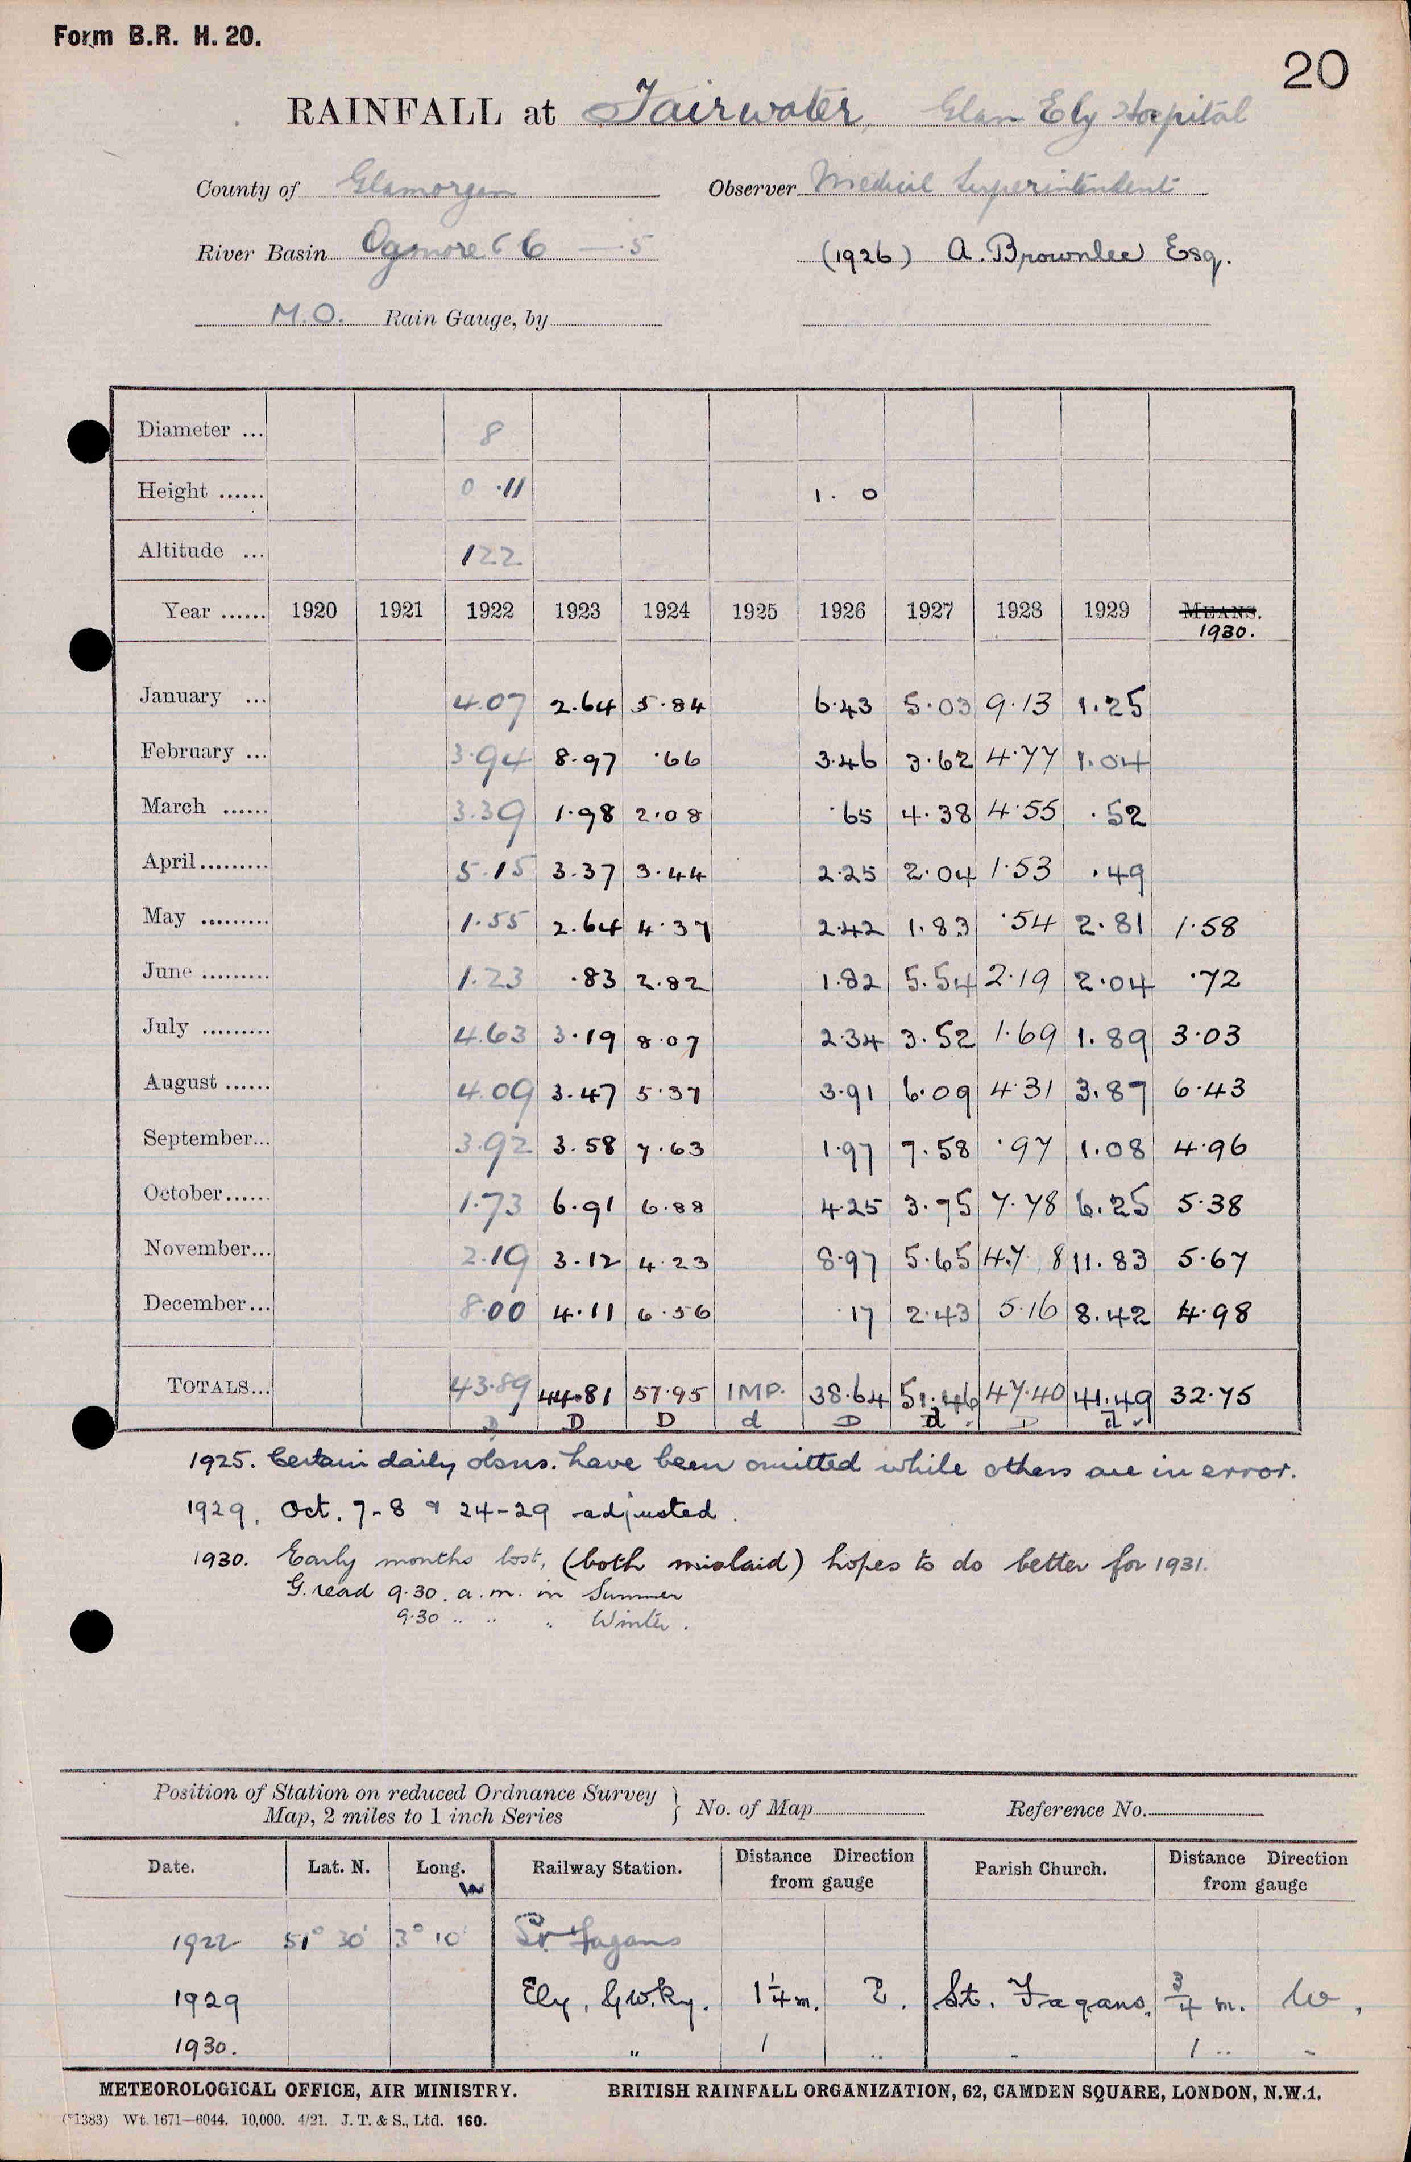 Form B.R. H. 20.
20
RAINFALL at Fairwater, Glan Ely Hospital
County of Glamorgan Observer Medical Superintendent
River Basin Ogmore 66 — 5 (1926) A. Brownlee Esq.
M.O. Rain Gauge, by
Diameter ... 8
Height ...... 0 .11 1. 0
Altitude ... 122
Year ...... 1920 1921 1922 1923 1924 1925 1926 1927 1928 1929 MEANS.
1930.
January ... 4.07 2.64 5.84 6.43 5.03 9.13 1.25
February ... 3.94 8.97 .66 3.46 3.62 4.77 1.04
March ...... 3.39 1.98 2.08 .65 4.38 4.55 .52
April......... 5.15 3.37 3.44 2.25 2.04 1.53 .49
May ......... 1.55 2.64 4.37 2.42 1.83 .54 2.81 1.58
June ......... 1.23 .83 2.82 1.82 5.54 2.19 2.04 .72
July ......... 4.63 3.19 8.07 2.34 3.52 1.69 1.89 3.03
August ...... 4.09 3.47 5.37 3.91 6.09 4.31 3.87 6.43
September... 3.92 3.58 7.63 1.97 7.58 .97 1.08 4.96
October...... 1.73 6.91 6.88 4.25 3.75 7.78 6.25 5.38
November... 2.19 3.12 4.23 8.97 5.65 4.7 8 11.83 5.67
December... 8.00 4.11 6.56 .17 2.43 5.16 8.42 4.98
TOTALS... 43.89 44.81 57.95 IMP. 38.64 51.46 47.40 41.49 32.75
D D D d D d D d
1925. Certain daily obsns. have been omitted while others are in error.
1929. Oct. 7-8 & 24-29 adjusted.
1930. Early months lost, (both mislaid) hopes to do better for 1931.
G. read 9.30. a.m. in Summer
9.30 " " " Winter.
Position of Station on reduced Ordnance Survey
Map, 2 miles to 1 inch Series } No. of Map Reference No.
Date. Lat. N. Long. W Railway Station. Distance Direction from gauge Parish Church. Distance Direction from gauge
1922 51° 30' 3° 10' St. Fagans
1929 Ely, G.W.Ry. 1¼ m. E. St. Fagans. ¾ m. W.
1930. " 1 " - 1 " -
METEOROLOGICAL OFFICE, AIR MINISTRY. BRITISH RAINFALL ORGANIZATION, 62, CAMDEN SQUARE, LONDON, N.W.1.
(*1383) Wt. 1671—6044. 10,000. 4/21. J. T. & S., Ltd. 160.